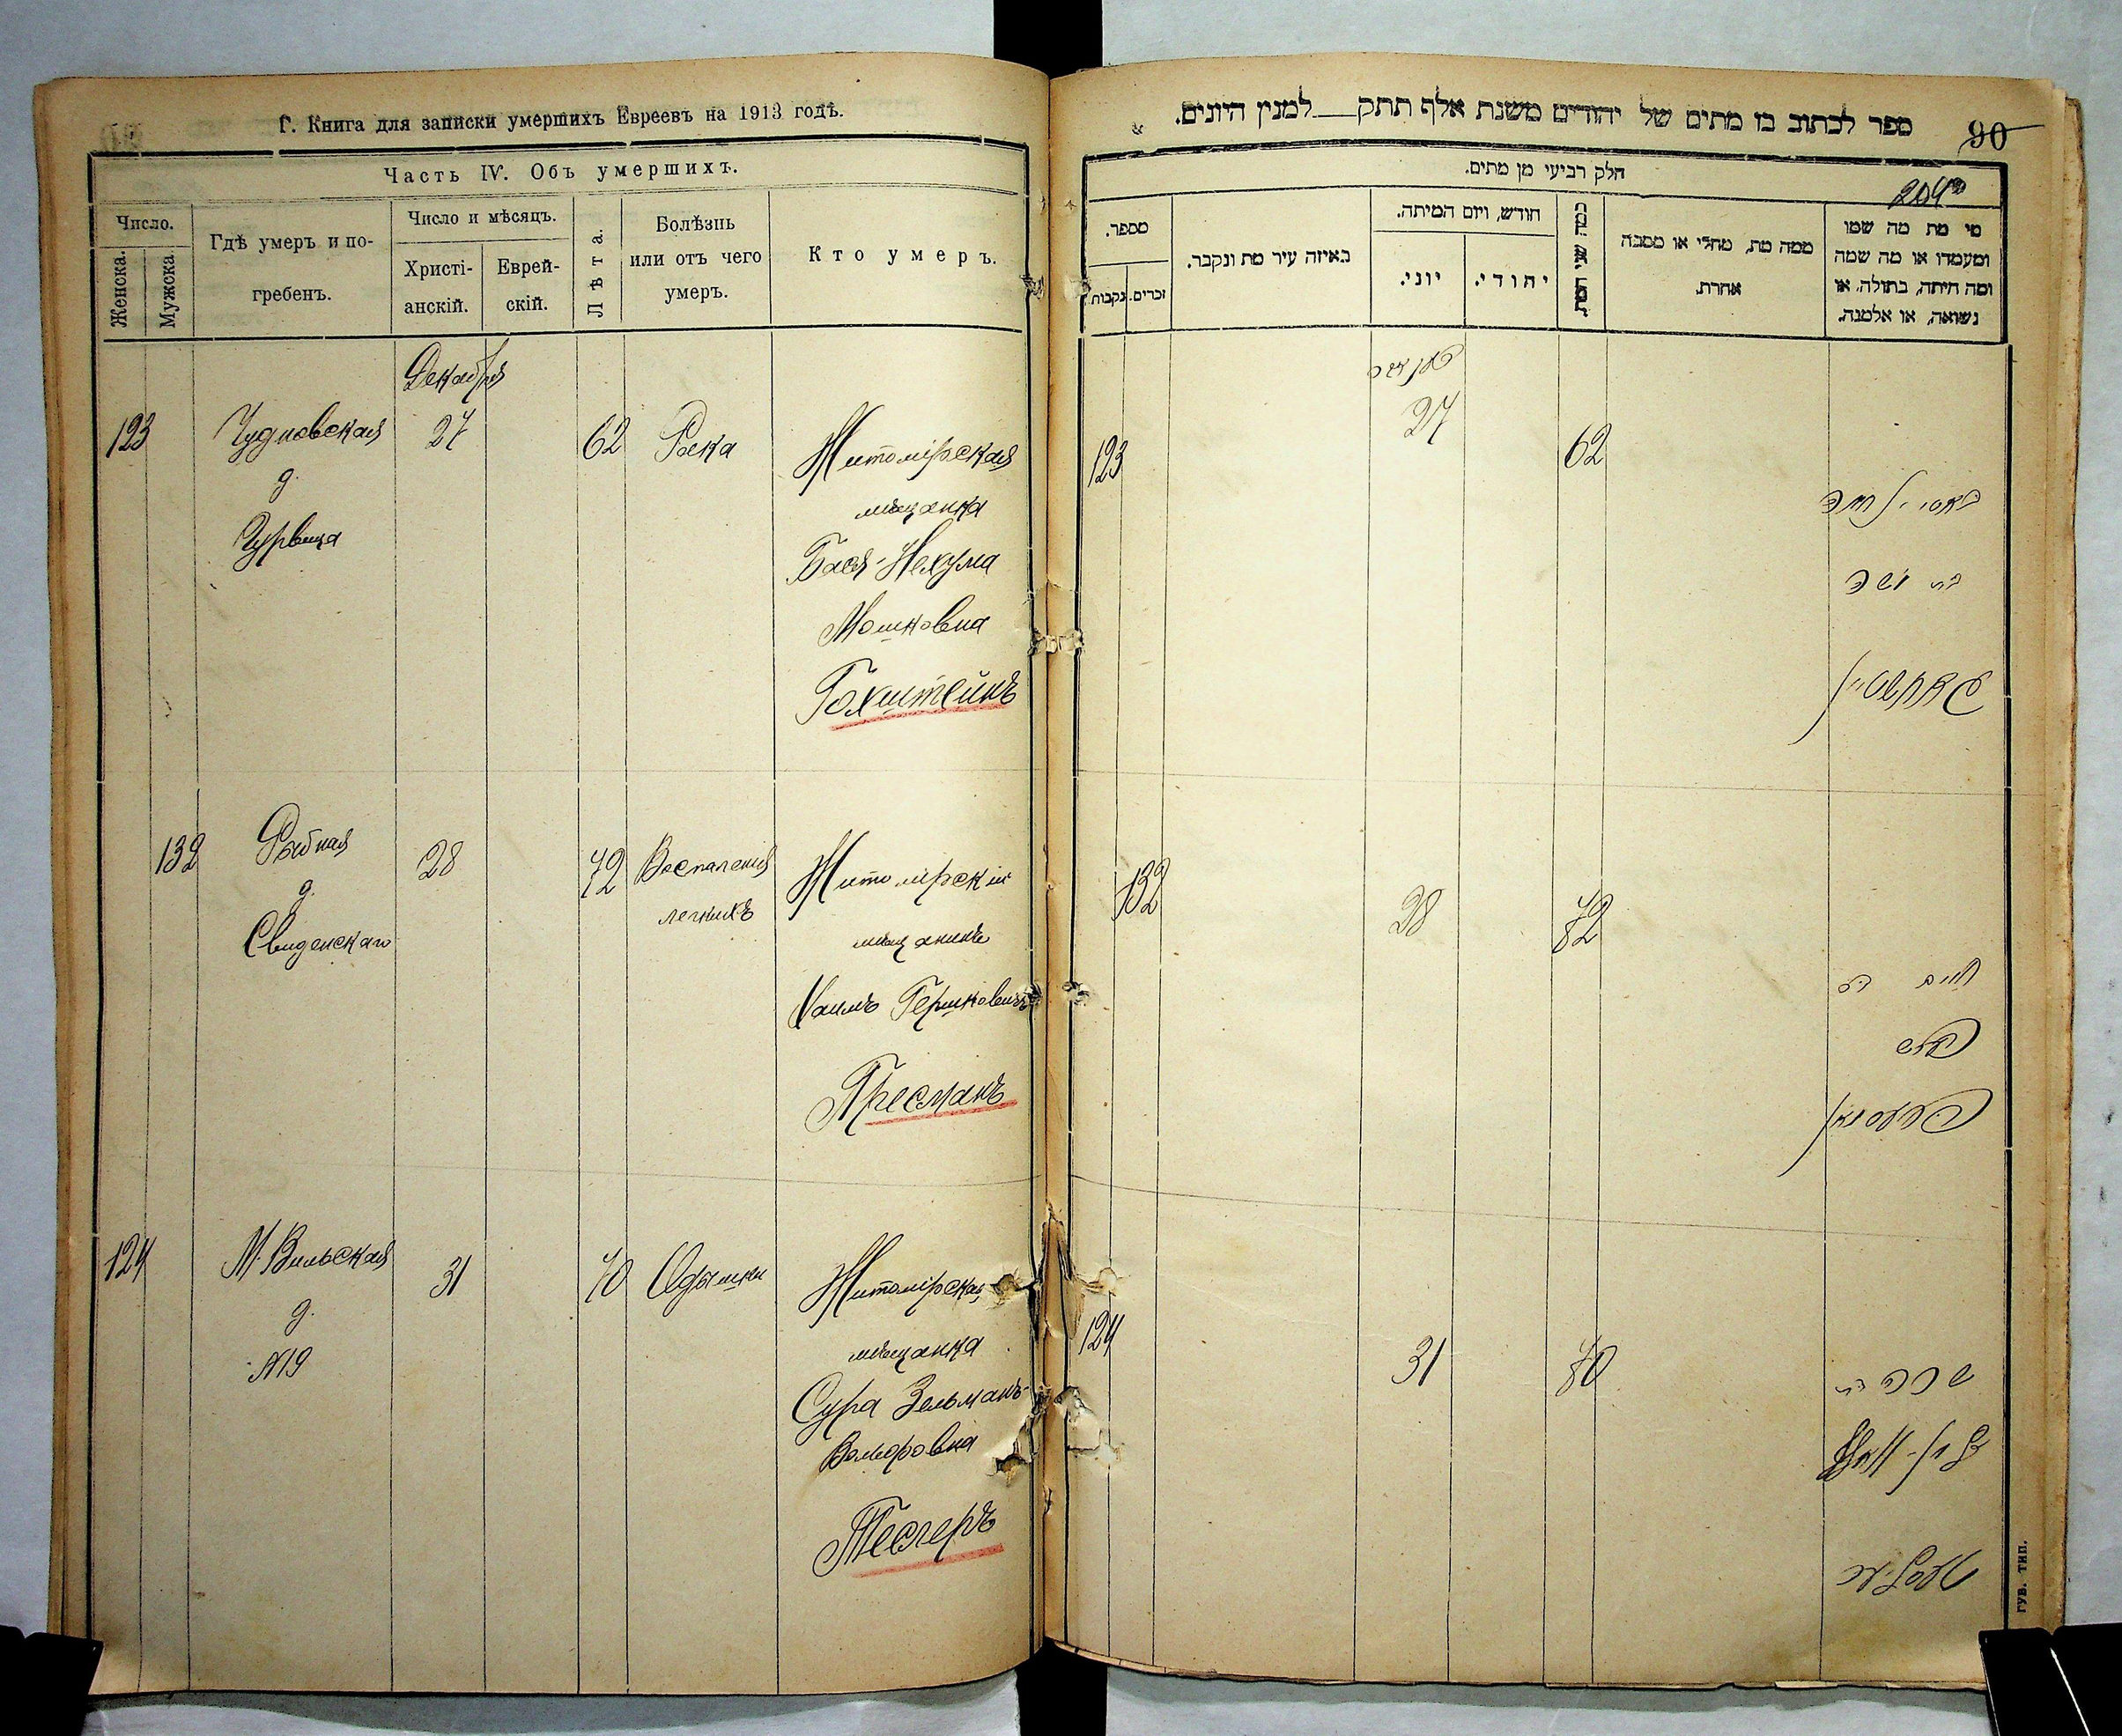 Г. Книга для записки умершихъ Евреевъ на 1913 годъ.
Часть IV. Объ умершихъ.
Число.
Женска.
Мужска.
Гдѣ умеръ и по-
гребенъ.
Число и мѣсяцъ.
Христі-
анскій.
Еврей-
скій.
Лѣта.
Болѣзнь
или отъ чего
умеръ.
Кто умеръ.
Декабря
123
Чудновская
д.
Гурвица
27
62
Рака
Житомірская
мѣщанка
Бася-Нехума
Мошковна
Гохштейнъ
132
Рыбная
д.
Свиденскаго
28
72
Воспаленія
легкихъ
Житомірскій
мѣщанинъ
Хаимъ Гершковичъ
Пресманъ
124
М. Вильская
д.
№19
31
70
Одышки
Житомірская
мѣщанка
Сура Зельманъ-
Вольфовна
Теслеръ
ספר לכתוב בו מתים של יהודים משנת אלף תתק למנין היונים.
90
חלק רביעי מן מתים.
204
מספר.
נקבות.
זכרים.
באיזה עיר מת ונקבר.
חודש, ויום המיתה.
יוני.
יהודי.
כמה שני המת.
ממה מת, מחלי או מסבה
אחרת.
מי מת מה שמו
ומעמדו או מה שמה
ומה היתה, בתולה, או
נשואה, או אלמנה.
123
27
62
בת משה
132
28
72
חיים בר
הירש
פרעסמאן
124
31
70
שרה בת
זלמן-וואלף
טעסלער
ГУБ. ТИП.